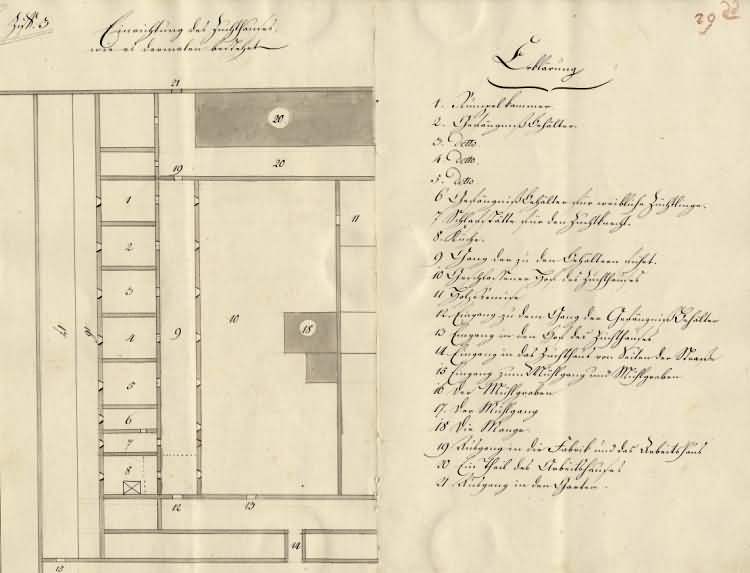 Einrichtung des Zuchthauses.
wie es dermalen bestehet
Erklärung
1. Rumpelkammer
2. Gefängniß Behälter.
3. Detto.
4. Detto.
5. Detto
6 Gefängniß Behälter für weibliche Züchtlinge.
7 Schlafstätte für den Zuchtknecht.
8. Küche.
9 Gang der zu den Behältern führt.
10 Geschlossener Hof des Zuchthauses
11 Holzremise
12. Eingang zu dem Gang der Gefängniß Behälter
13 Eingang in den Hof des Zuchthauses
14. Eingang in das Zuchthaus von Seiten der Strasse
15 Eingang zum Mühlgang und Mühlgraben
16 Der Mühlgraben
17. Der Mühlgang
18 Die Mange.
19 Ausgang in die Fabrik und das Arbeitshaus
20 Ein Theil des Arbeitshauses
21 Ausgang in den Garten.
21
20
19
20
1
11
2
3
10
17
16
9
18
4
5
6
7
8
12
13
14
15